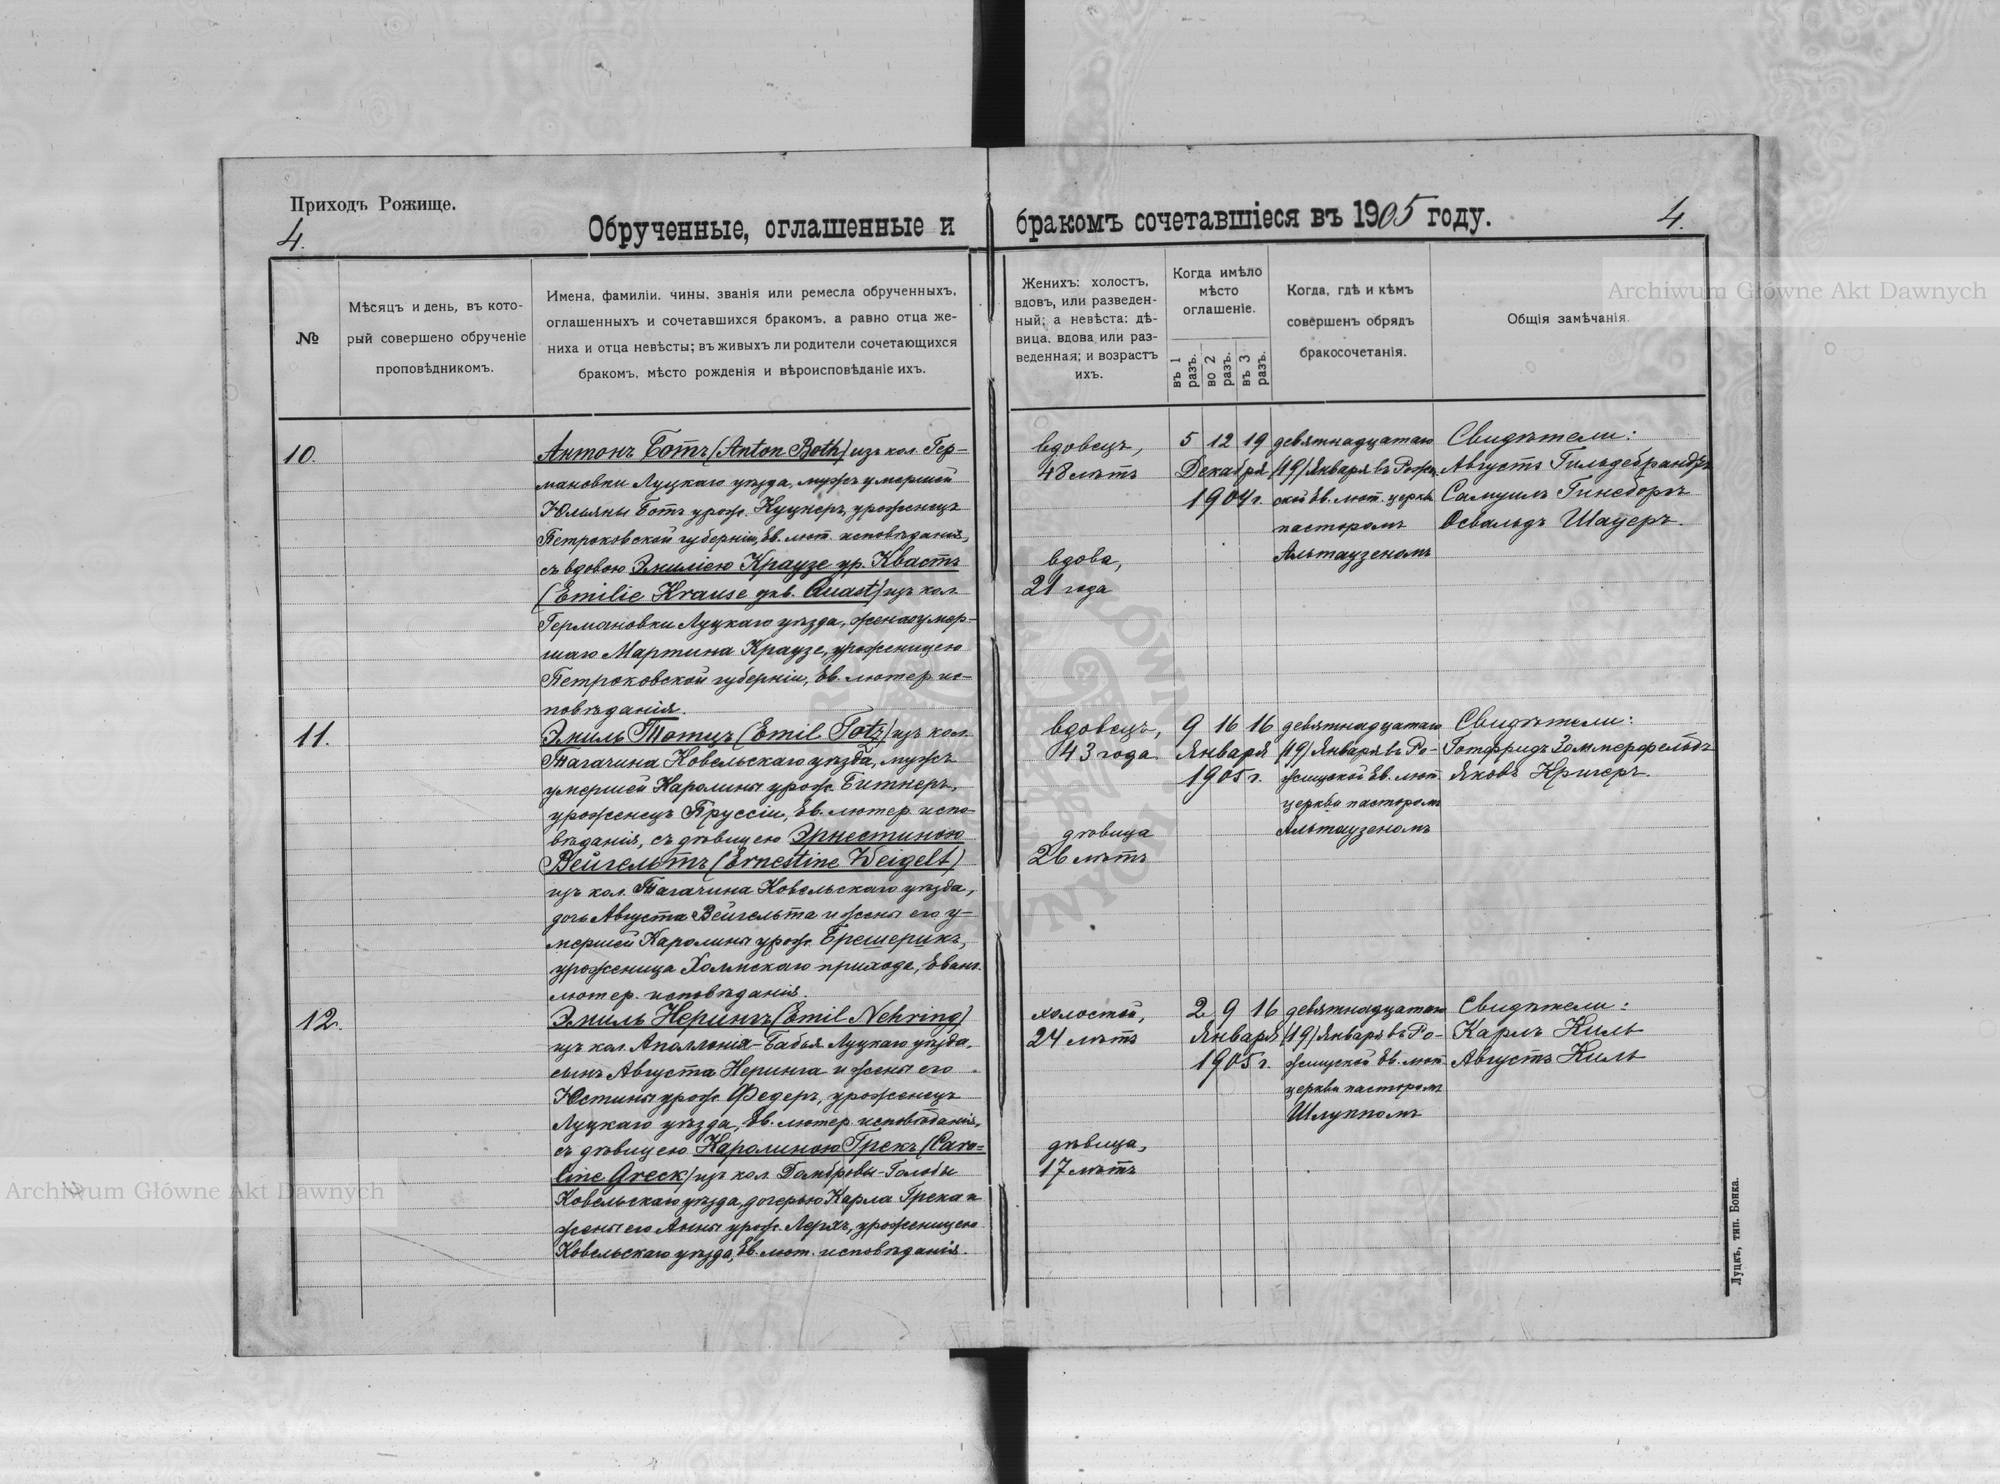 Приходъ Рожище.
4.
Обрученные, оглашенные и
бракомъ сочетавшіеся въ 1905 году.
4.
№
Мѣсяцъ и день, въ кото-
рый совершено обрученіе
проповѣдникомъ.
Имена, фамиліи, чины, званія или ремесла обрученныхъ,
оглашенныхъ и сочетавшихся бракомъ, а равно отца же-
ниха и отца невѣсты; въ живыхъ ли родители сочетающихся
бракомъ, мѣсто рожденія и вѣроисповѣданіе ихъ.
Женихъ: холостъ,
вдовъ, или разведен-
ный; а невѣста: дѣ-
вица, вдова или раз-
веденная; и возрастъ
ихъ.
Когда имѣло
мѣсто
оглашеніе.
въ 1 разъ.
во 2 разъ.
въ 3 разъ.
Когда, гдѣ и кѣмъ
совершенъ обрядъ
бракосочетанія.
Общія замѣчанія.
10.
Антонъ Ботъ (Anton Both) изъ кол. Гер-
мановки Луцкаго уѣзда, мужъ умершей
Юльяны Ботъ урож. Куцнеръ, уроженецъ
Петроковской губерніи, Ев. лют. исповѣданія,
съ вдовою Эмиліею Краузе ур. Квастъ
(Emilie Krause geb. Quast) изъ кол.
Германовки Луцкаго уѣзда, жена умер-
шаго Мартина Краузе, уроженицею
Петроковской губерніи, Ев. лютер. ис-
повѣданія.
вдовецъ,
48 лѣтъ
вдова,
21 года
5 12 19
Декабря
1904 г.
девятнадцатаго
(19) Января въ Рожи
ской Ев. лют. церкви
пасторомъ
Альтаузеномъ
Свидѣтели:
Августъ Гильдебрандтъ
Самуилъ Гинсборъ
Освальдъ Шауеръ.
11.
Эмиль Тотцъ (Emil Totz) изъ кол.
Тагачина Ковельскаго уѣзда, мужъ
умершей Каролины урож. Битнеръ,
уроженецъ Пруссіи, Ев. лютер. испо-
вѣданія, съ дѣвицею Эрнестиною
Вейгельтъ (Ernestine Weigelt)
изъ кол. Тагачина Ковельскаго уѣзда,
дочь Августа Вейгельта и жены его у-
мершей Каролины урож. Брешерикъ,
уроженица Холмскаго прихода, Еванг.
лютер. исповѣданія.
вдовецъ,
43 года
дѣвица
26 лѣтъ
9 16 16
Января
1905 г.
девятнадцатаго
(19) Января въ Ро-
жищской Ев. лют.
церкви пасторомъ
Альтаузеномъ
Свидѣтели:
Готфридъ Зоммерфельдъ
Яковъ Кригеръ.
12.
Эмиль Нерингъ (Emil Nehring)
изъ кол. Аполлонія-Бабья Луцкаго уѣзда,
сынъ Августа Неринга и жены его
Юстины урож. Федеръ, уроженецъ
Луцкаго уѣзда, Ев. лютер. исповѣданія,
съ дѣвицею Каролиною Грекъ (Caro-
line Greck) изъ кол. Домбровы-Голобы
Ковельскаго уѣзда, дочерью Карла Грека и
жены его Анны урож. Лерхъ, уроженицею
Ковельскаго уѣзда, Ев. лют. исповѣданія.
холостой,
24 лѣтъ
дѣвица,
17 лѣтъ
2 9 16
Января
1905 г.
девятнадцатаго
(19) Января въ Ро-
жищской Ев. лют.
церкви пасторомъ
Шлуппомъ
Свидѣтели:
Карлъ Киль
Августъ Киль
Луцкъ, тип. Бонка.
Archiwum Główne Akt Dawnych
Archiwum Główne Akt Dawnych